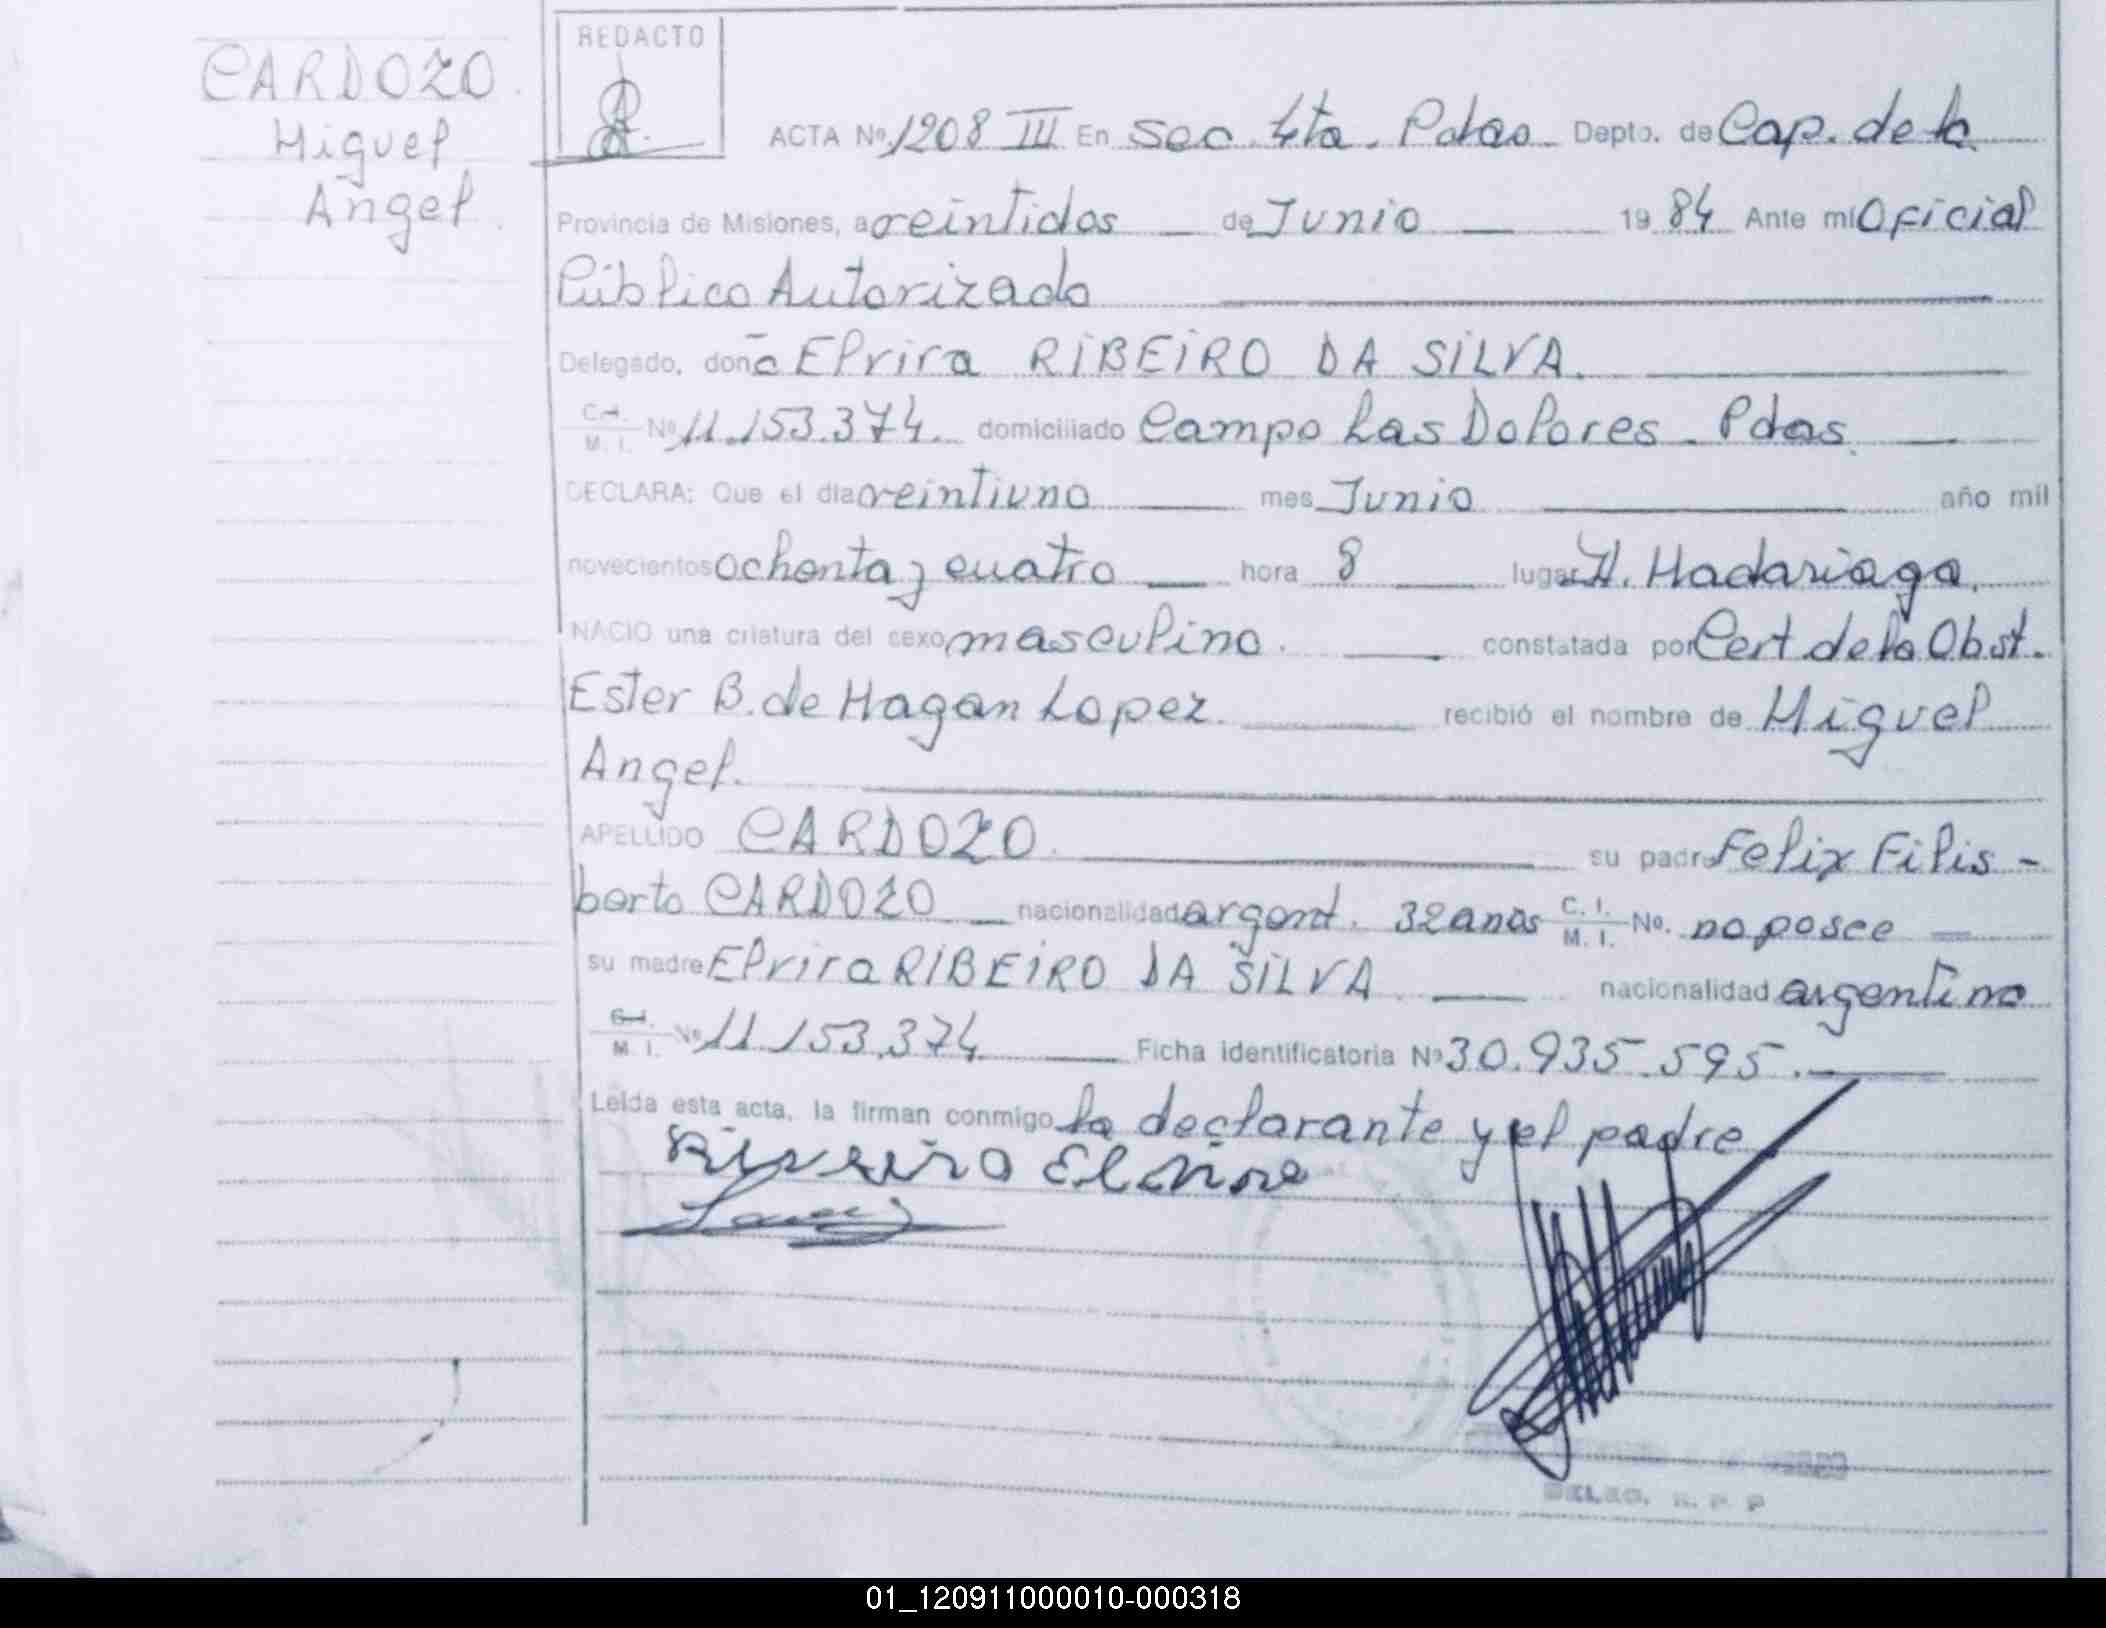 CARDOZO
Miguel
Angel
REDACTO
ACTA Nº 1208 III En Sec. 4ta. Pdas. Depto. de Cap. de la
Provincia de Misiones, a veintidos de Junio 1984 Ante mi Oficial
Público Autorizado
Delegado, doña Elvira RIBEIRO DA SILVA.
C.I. M. I. Nº 11.153.374. domiciliado Campo Las Dolores - Pdas.
DECLARA: Que el día veintiuno mes Junio año mil
novecientos ochenta y cuatro hora 8 lugar H. Madariaga.
NACIO una criatura del sexo masculino. constatada por Cert. de la Obst.
Ester B. de Hagan Lopez. recibió el nombre de Miguel
Angel.
APELLIDO CARDOZO su padre Felix Filis-
berto CARDOZO nacionalidad argent. 32 anos C. I. M. I. No. no posee
su madre Elvira RIBEIRO DA SILVA nacionalidad argentina
C.I. M. I. Nº 11.153.374 Ficha identificatoria Nº 30.935.595.
Leída esta acta, la firman conmigo la declarante y el padre
Riveiro Elvira
DELEG. R. P. P
01_120911000010-000318